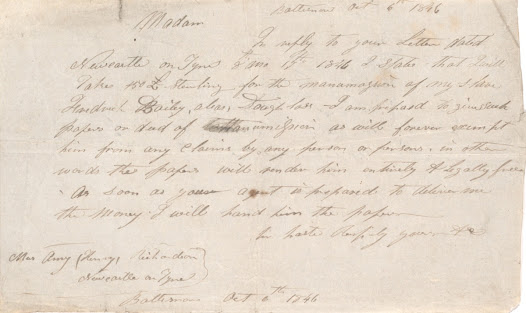 Baltimore Oct 6th 1846
Madam
In reply to your Letter dated
Newcastle on Tyne 8 mo 17th 1846 I state that I will
Take 150 £ sterling for the manamission of my slave
Bailey, alias, Douglass - I am prepared to give such
papers or deed of Manumission as will forever exempt
him from any claims by any person or persons. in other
words the papers will render him entirely & Legally free
As soon as your agent is prepared to deliver me
the money. I will hand him the papers
In haste yours &c
Mrs (Henry) Richardson
Newcastle on Tyne
Baltimore Oct 6th 1846